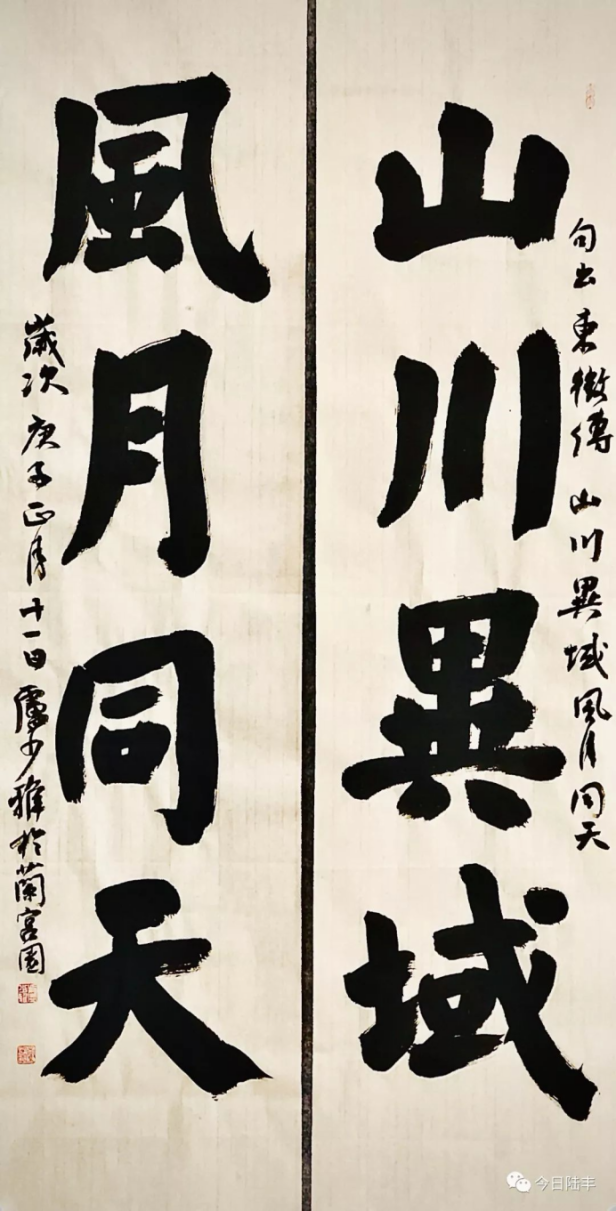 句出東徵傳 山川異域風月同天
山川異域
風月同天
歲次庚子正月十一日盧少雅於蘭宮園
今日陆丰